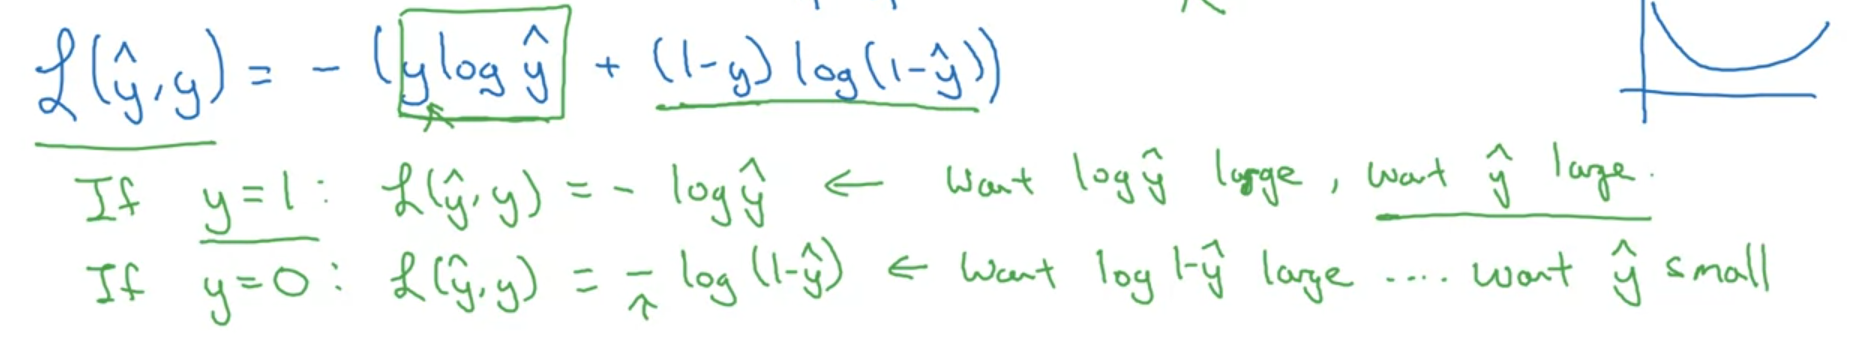 ℒ(ŷ, y) = - (y log ŷ + (1-y) log(1-ŷ))
If y=1: ℒ(ŷ, y) = - log ŷ ← Want log ŷ large, want ŷ large.
If y=0: ℒ(ŷ, y) = - log (1-ŷ) ← Want log 1-ŷ large .... want ŷ small